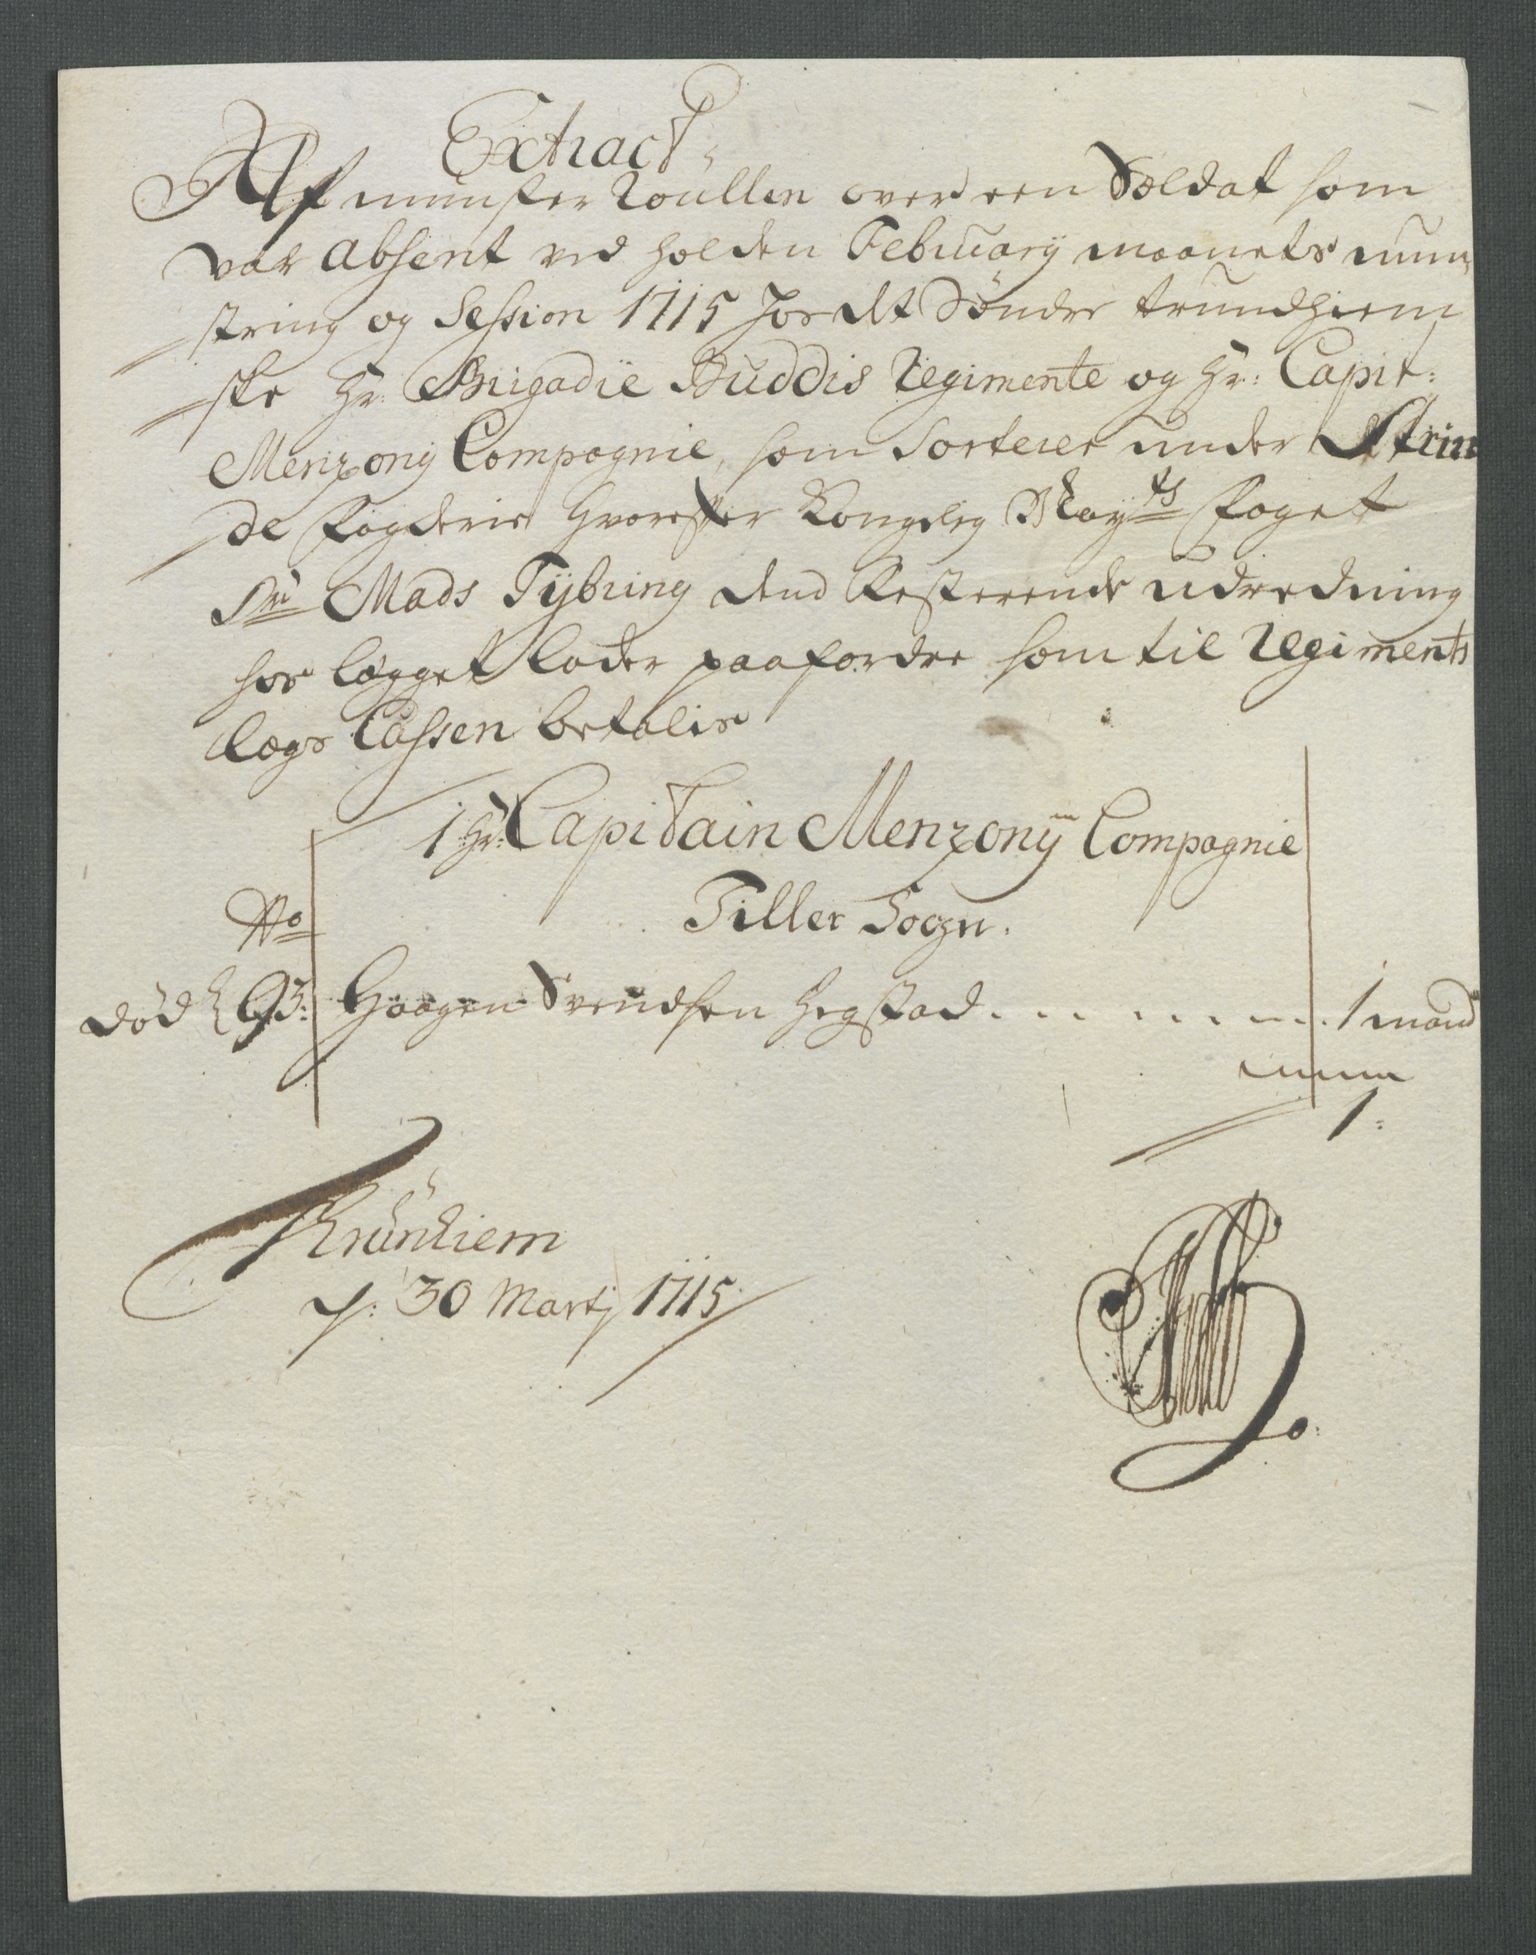 Extract
Af munster Roullen over een Soldat som
var absent ved holden February maanets mun
string og Session 1715 for dt Sönder trundhiem
ske Hr: Brigadie Buddis Regimente og Hr: Capit:
Menzony Compagnie, som Sorterer under Strin
de fogderie hvorefter Kongelig Mayts foget
Sr Mads Tÿbring dend Resterende udredning
hos lægget lader paafordre som til Regiments
lægs Cassen betalis
1 Hr: Capitain Menzonÿ Compagnie
No
Tiller Sogn.
död 93: Haagen Svendsen Hegstad 1 mand
1:
Trünhiem
d: 30 Martj 1715